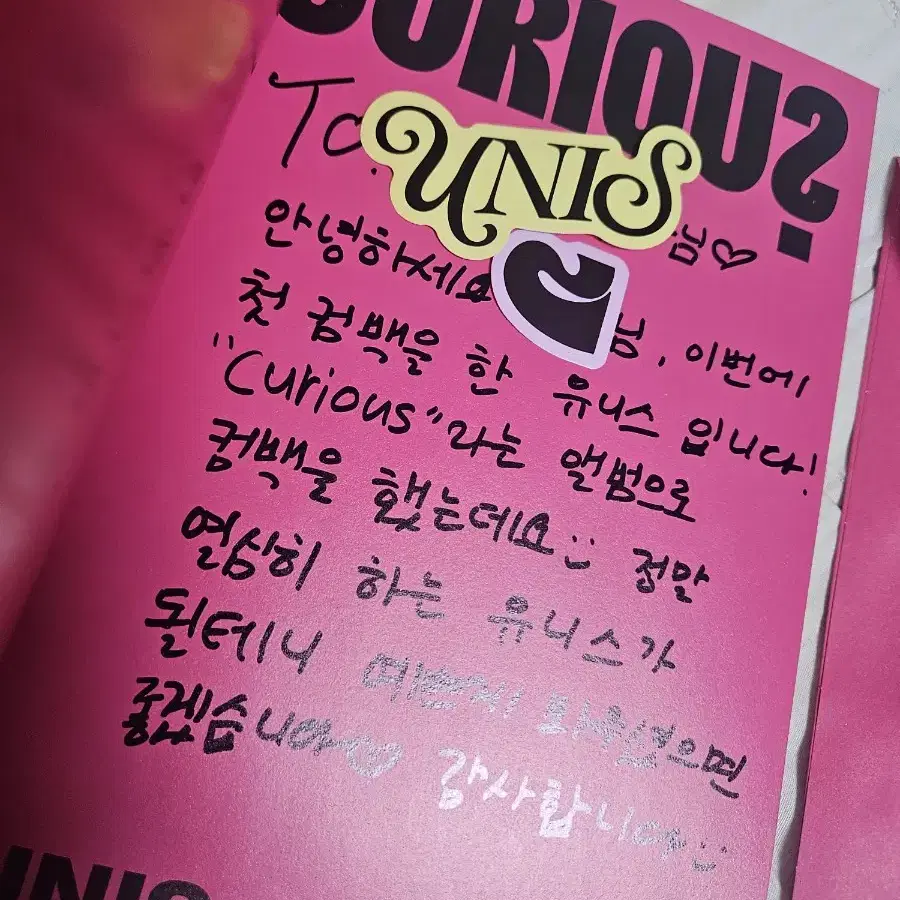 CURIOU?
To.
UNIS
님♡
안녕하세요 님, 이번에
첫 컴백을 한 유니스 입니다!
"Curious"라는 앨범으로
컴백을 했는데요 정말
열심히 하는 유니스가
될테니 예쁘게 봐주셨으면
좋겠습니다♡ 감사합니다
UNIS